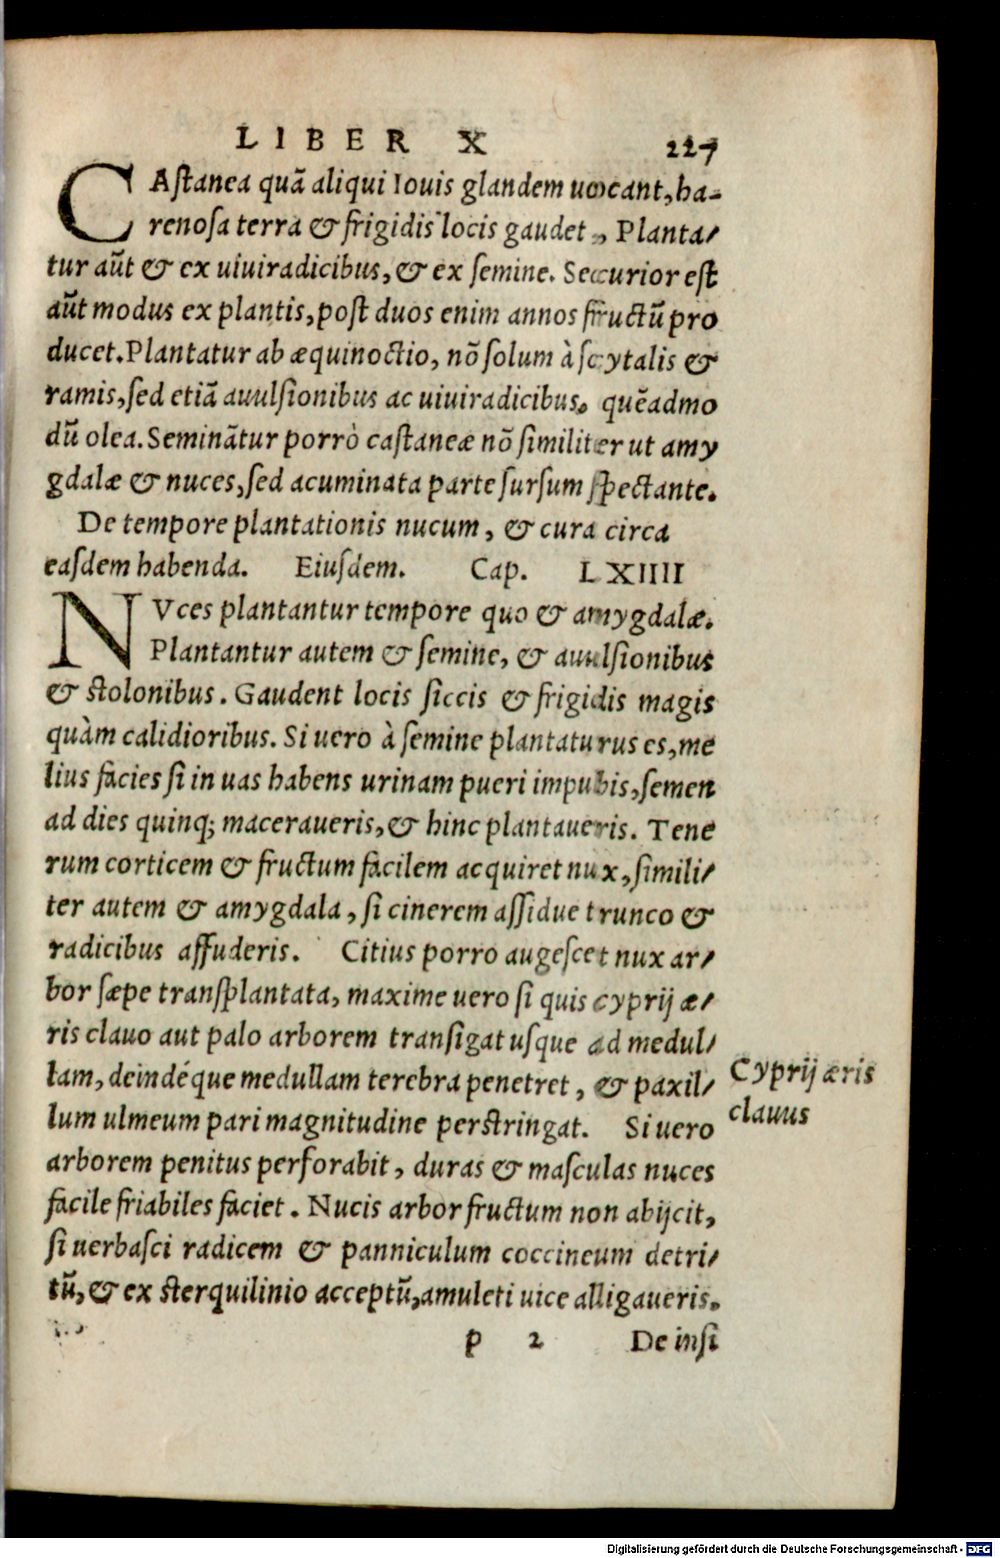 LIBER X 227
CAſtanea quã aliqui Iouis glandem uocant, ha-
renoſa terra & frigidis locis gaudet, Planta/
tur aũt & ex uiuiradicibus, & ex ſemine. Securior eſt
aũt modus ex plantis, poſt duos enim annos fructũ pro
ducet. Plantatur ab æquinoctio, nõ ſolum à ſcytalis &
ramis, ſed etiã auulſionibus ac uiuiradicibus. quẽadmo
dũ olea. Seminãtur porrò caſtaneæ nõ ſimiliter ut amy
gdalæ & nuces, ſed acuminata parte ſurſum ſpectante.
De tempore plantationis nucum, & cura circa
eaſdem habenda. Eiuſdem. Cap. LXIIII
NVces plantantur tempore quo & amygdalæ.
Plantantur autem & ſemine, & auulſionibus
& ſtolonibus. Gaudent locis ſiccis & frigidis magis
quàm calidioribus. Si uero à ſemine plantaturus es, me
lius facies ſi in uas habens urinam pueri impubis, ſemen
ad dies quinq; maceraueris, & hinc plantaueris. Tene
rum corticem & fructum facilem acquiret nux, ſimili/
ter autem & amygdala, ſi cinerem aſſidue trunco &
radicibus affuderis. Citius porro augeſcet nux ar/
bor ſæpe tranſplantata, maxime uero ſi quis cyprij æ/
ris clauo aut palo arborem tranſigat uſque ad medul/
lam, deindéque medullam terebra penetret, & paxil/
lum ulmeum pari magnitudine perſtringat. Si uero
arborem penitus perforabit, duras & maſculas nuces
facile friabiles faciet. Nucis arbor fructum non abijcit,
ſi uerbaſci radicem & panniculum coccineum detri/
tũ, & ex ſterquilinio acceptũ, amuleti uice alligaueris.
p 2 De inſi
Cyprij æris
clauus
Digitalisierung gefördert durch die Deutsche Forschungsgemeinschaft - DFG